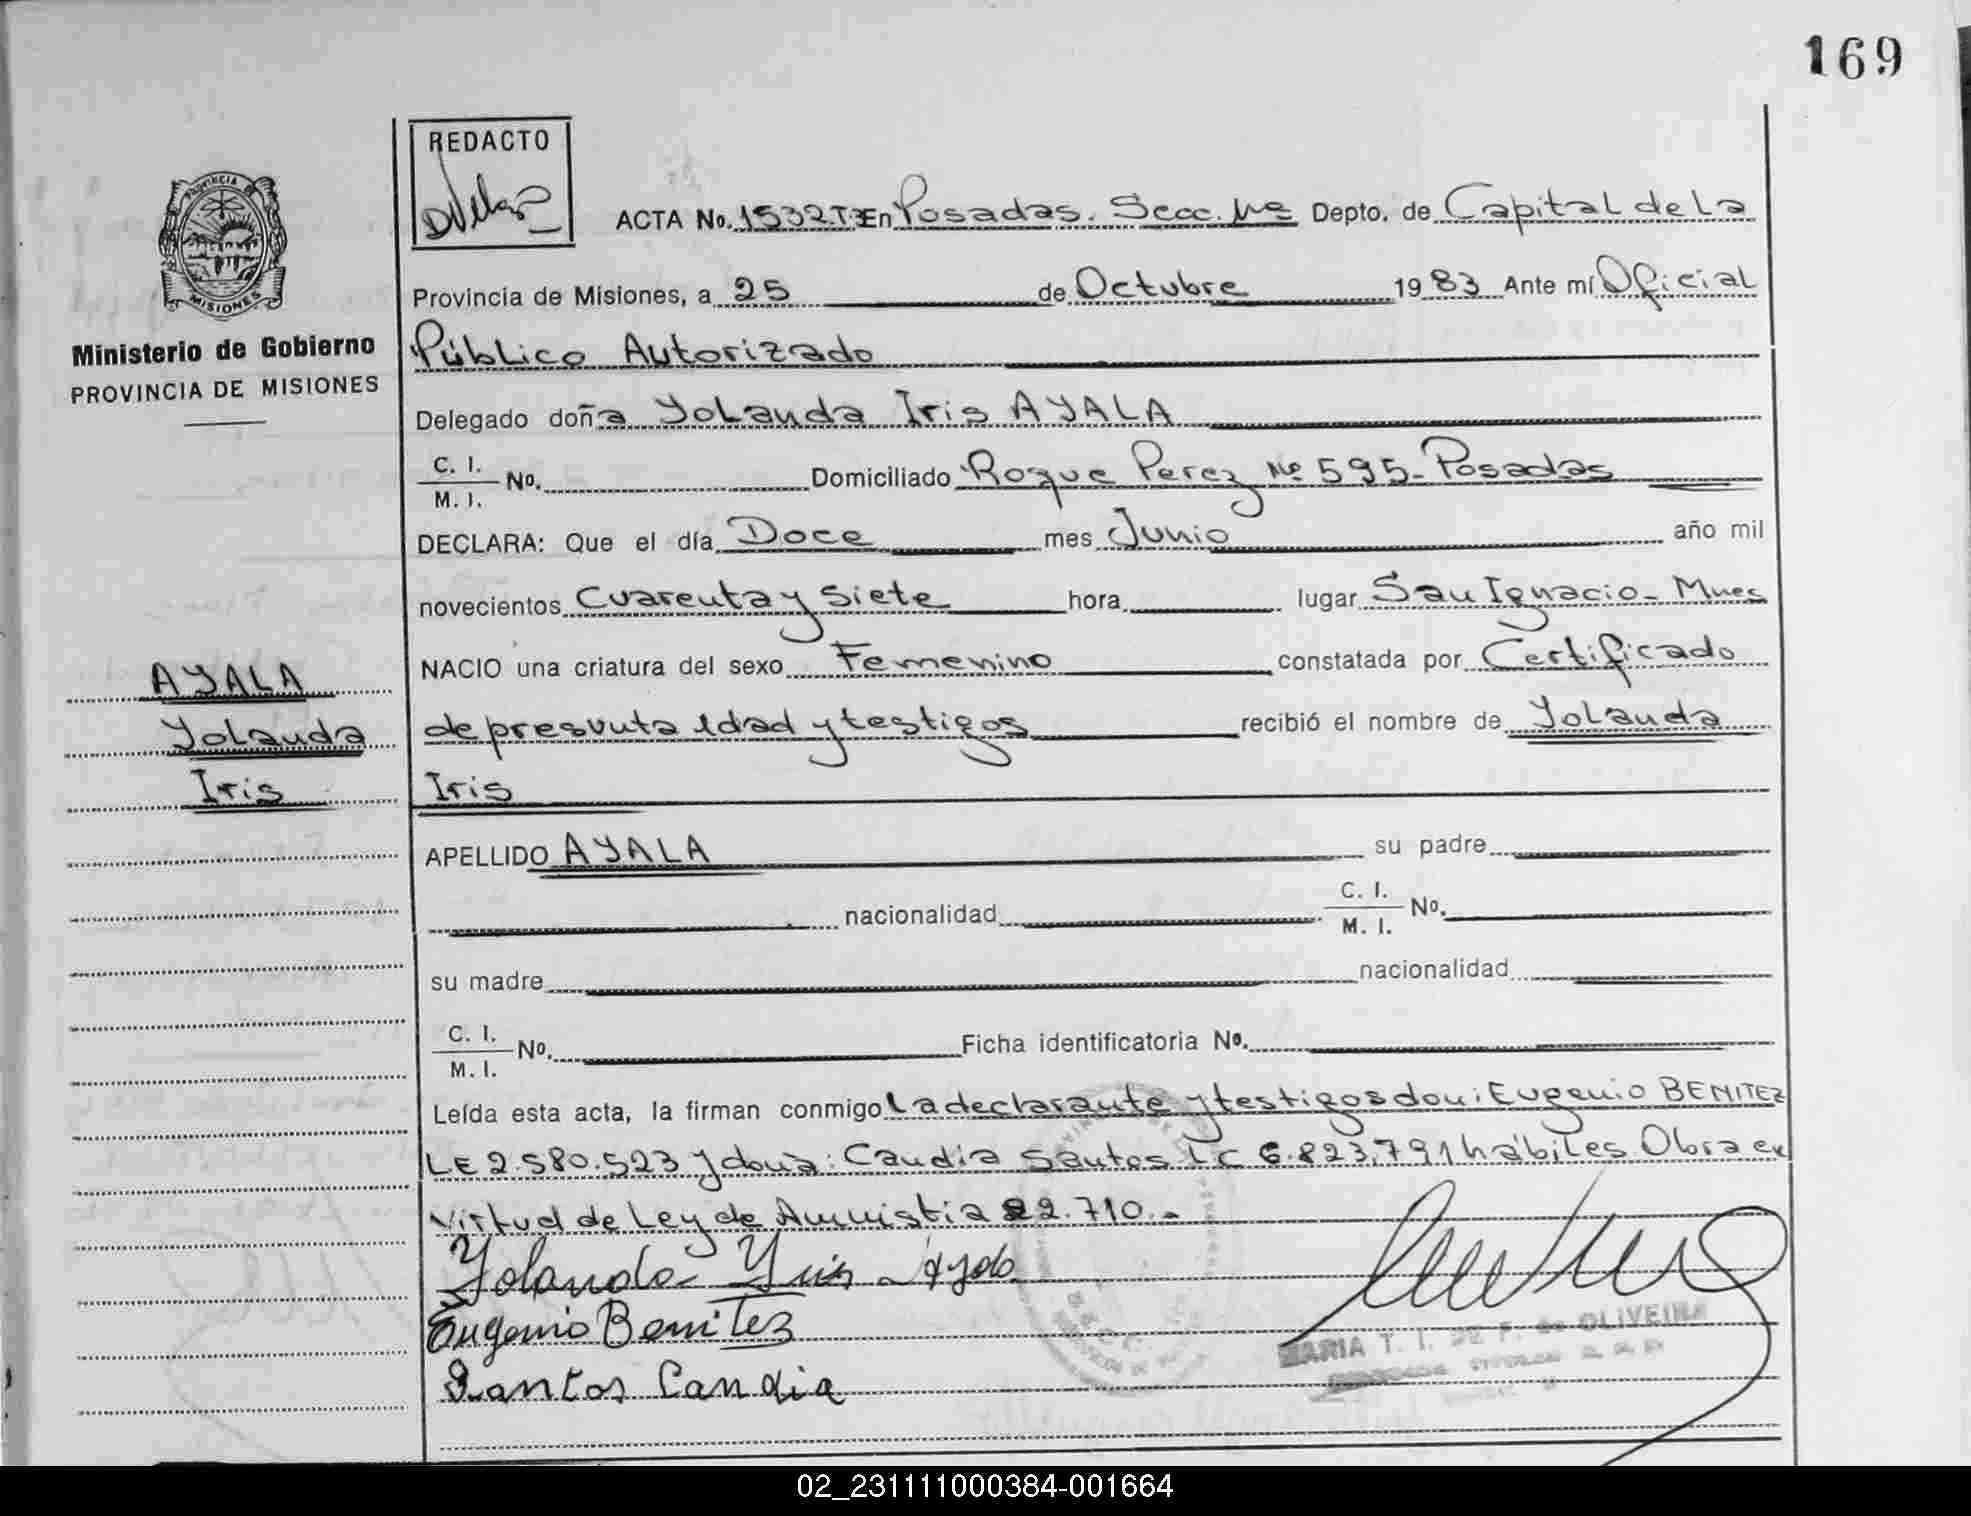 169
REDACTO
PROVINCIA
MISIONES
Ministerio de Gobierno
PROVINCIA DE MISIONES
ACTA No. 1532.T:3 En Posadas. Secc. Nº Depto. de Capital de La
Provincia de Misiones, a 25 de Octubre 1983 Ante mí Oficial
Público Autorizado
Delegado doña Yolanda Iris AYALA
C. I. / M. I. No. Domiciliado Roque Perez Nº 595- Posadas
DECLARA: Que el día Doce mes Junio año mil
novecientos Cuarenta y Siete hora lugar San Ignacio- Mnes
NACIO una criatura del sexo Femenino constatada por Certificado
de presunta Edad y testigos recibió el nombre de Yolanda
Iris
AYALA
Yolanda
Iris
APELLIDO AYALA su padre
nacionalidad C. I. / M. I. No.
su madre nacionalidad
C. I. / M. I. No. Ficha identificatoria No.
Leída esta acta, la firman conmigo La declarante y testigos don: Eugenio BENITEZ
LE 2.580.523 y doña: Candia Santos LC 6.823.791 hábiles. Obra en
Virtud de Ley de Amnistia 22.710.-
Yolanda Yris Ayala
Eugenio Benitez
Santos Candia
MARIA T. I. DE F. de OLIVEIRA
02_231111000384-001664